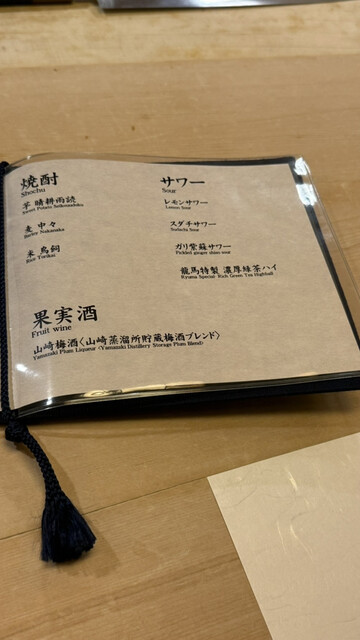 焼酎
Shochu
芋 晴耕雨読
Sweet Potato Seikouudoku
麦 中々
Barley Nakanaka
米 鳥飼
Rice Torikai
サワー
Sour
レモンサワー
Lemon Sour
スダチサワー
Sudachi Sour
ガリ紫蘇サワー
Pickled ginger shiso sour
龍馬特製 濃厚緑茶ハイ
Ryoma Special Rich Green Tea Highball
果実酒
Fruit wine
山崎梅酒〈山崎蒸溜所貯蔵梅酒ブレンド〉
Yamazaki Plum Liqueur 〈Yamazaki Distillery Storage Plum Blend〉